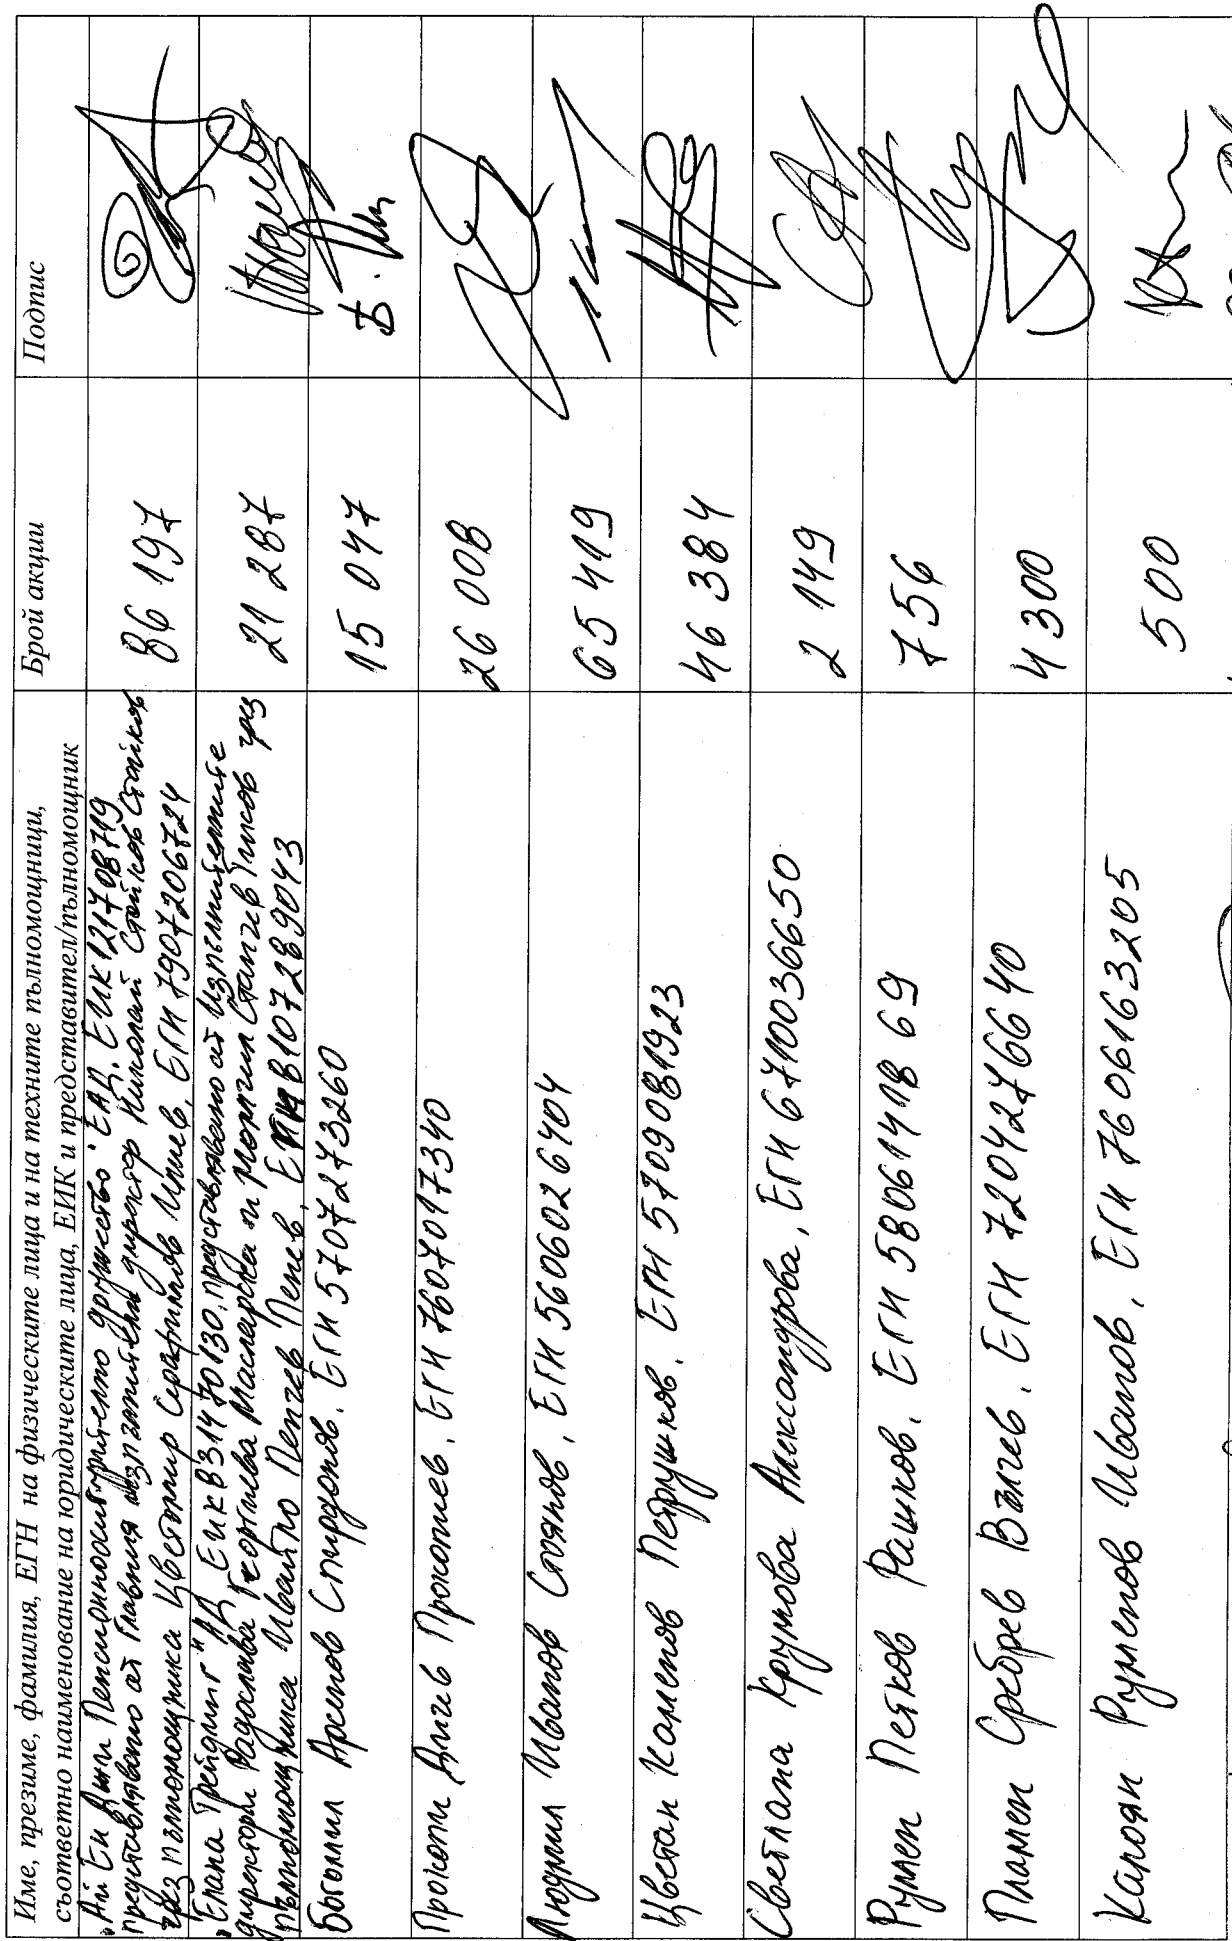 Име, презиме, фамилия, ЕГН на физическите лица и на техните пълномощници,
съответно наименование на юридическите лица, ЕИК и представител/пълномощник
Брой акции
Подпис
"Ай Ен Джи Пенсионноосигурително дружество" ЕАД, ЕИК 121708719
представлявано от Главния изпълнителен директор Николай Стойков Стойков
чрез пълномощника Цветомир Серафимов Илиев, ЕГН 7907206724
86 197
"Елана Трейдинг" АД, ЕИК 831470130, представлявано от Изпълнителните
директори Радослава Георгиева Масларска и Момчил Станчев Тиков чрез
пълномощника Ивайло Пенчев Пенев, ЕГН 8107289043
21 287
Богомил Арсенов Спиридонов, ЕГН 5707273260
15 047
Прокопи Дичев Прокопиев, ЕГН 7607017340
26 008
Людмил Иванов Стоянов, ЕГН 5606026404
65 419
Цветан Каменов Петрушков, ЕГН 5709081923
46 384
Светлана Крумова Александрова, ЕГН 6710036650
2 149
Румен Петков Рашков, ЕГН 5806141869
756
Пламен Сребрев Вълчев, ЕГН 7204276640
4 300
Калоян Руменов Иванов, ЕГН 7606163205
500